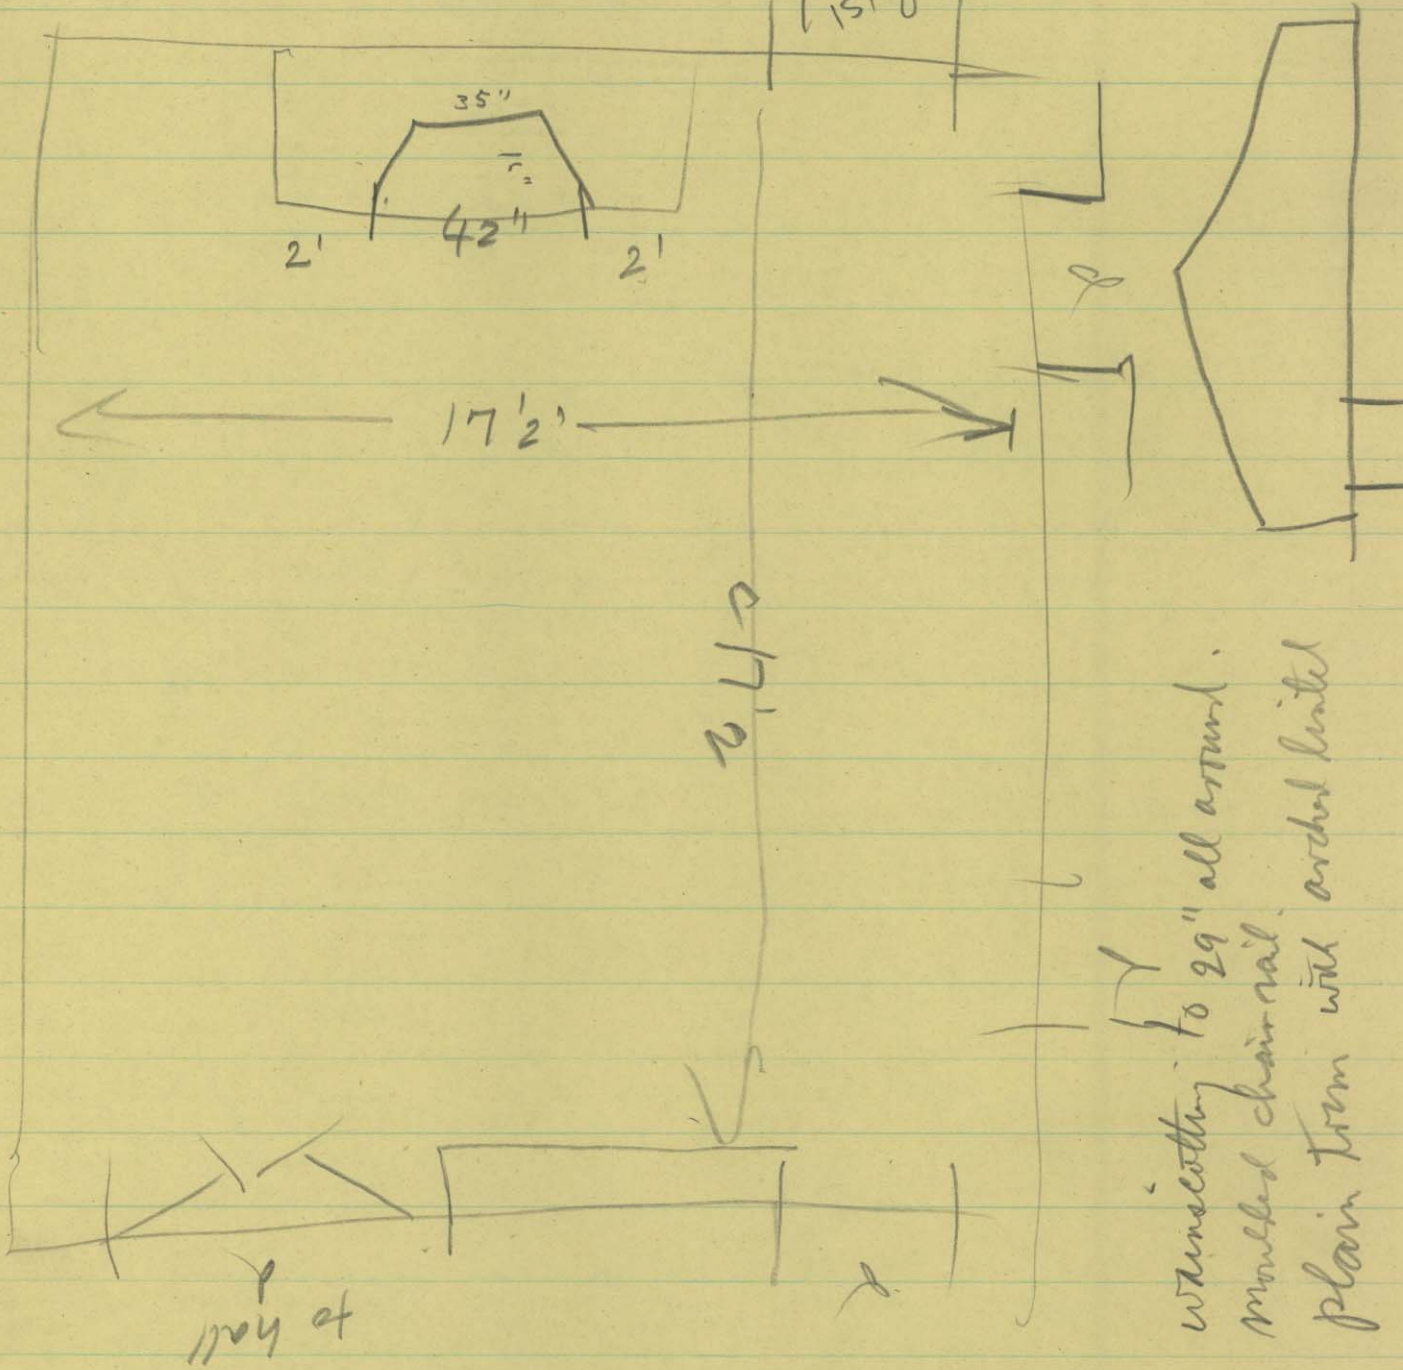 35"
42"
2'
2'
17 1/2'
to hall
wainscotting to 29" all around.
moulded chair-rail.
plain trim with arched lintel